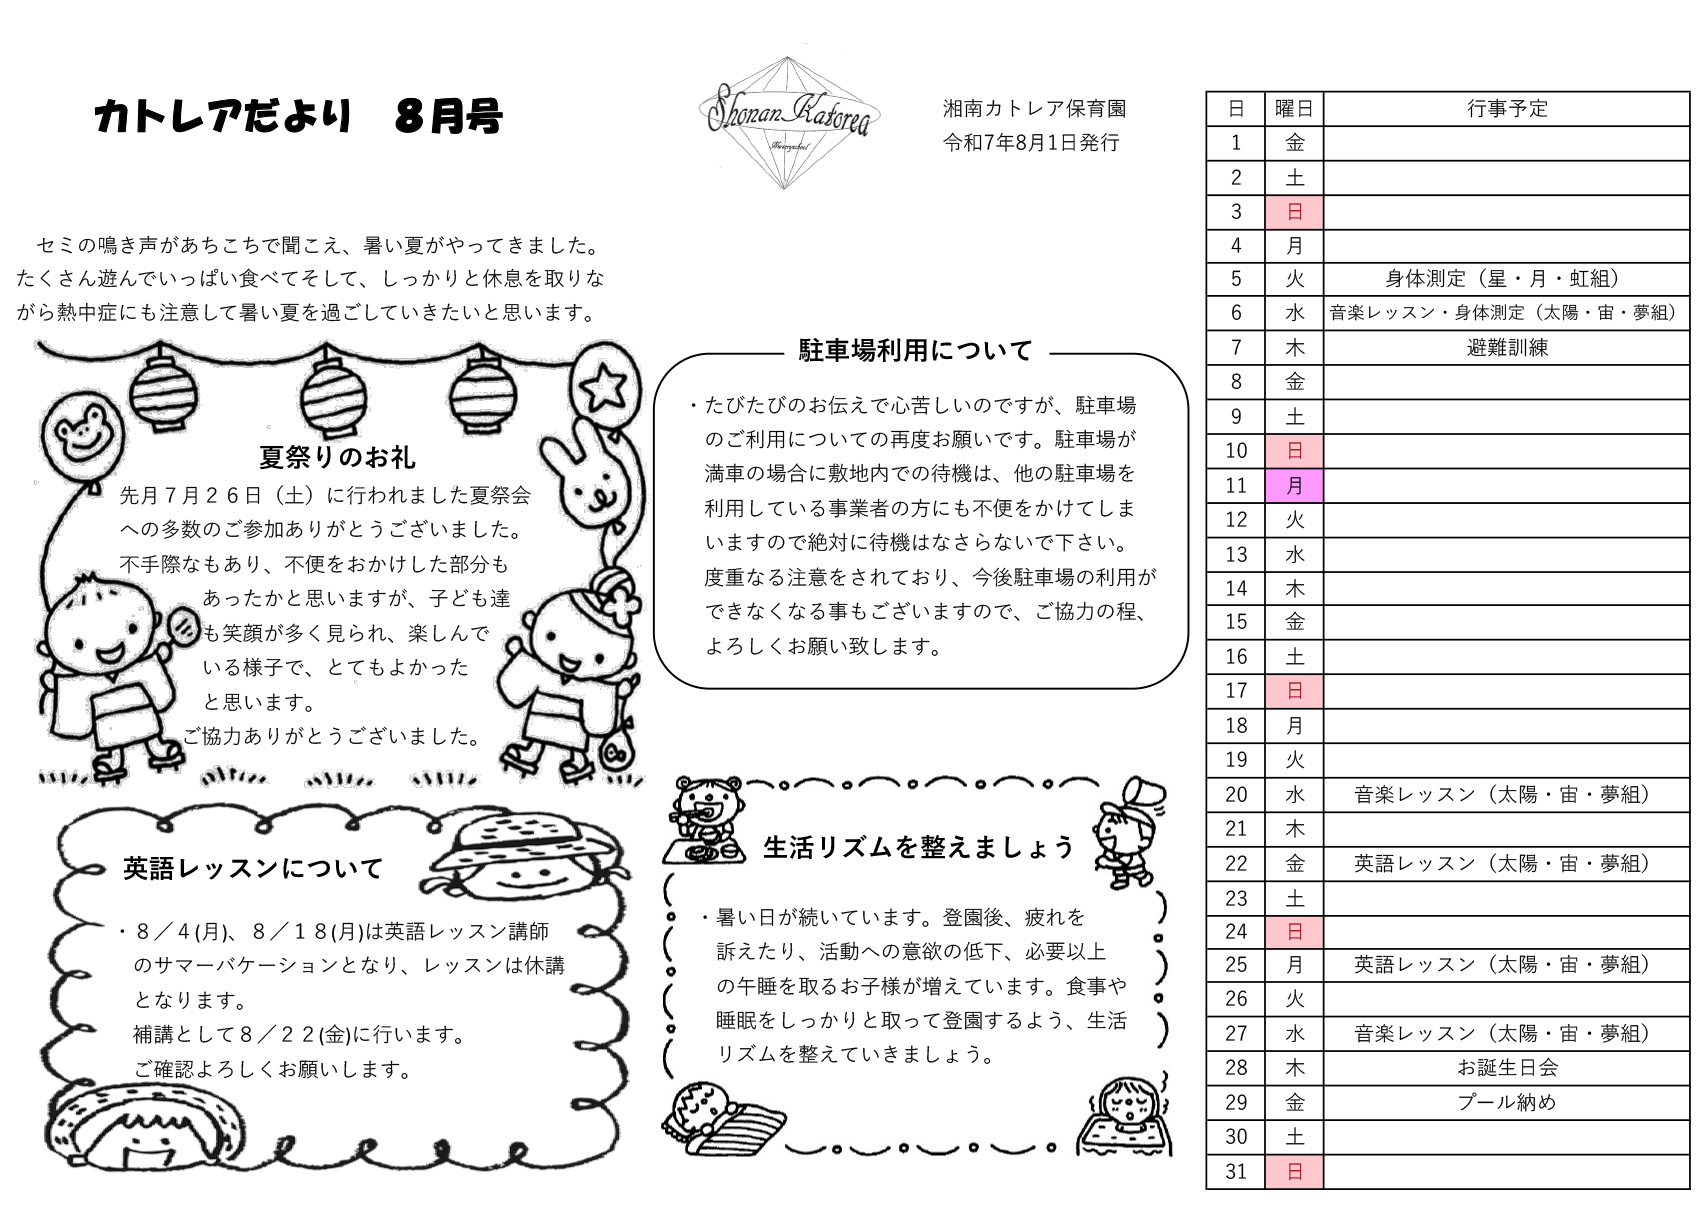 カトレアだより　８月号
Shonan Katorea
Nurseryschool
湘南カトレア保育園
令和7年8月1日発行
セミの鳴き声があちこちで聞こえ、暑い夏がやってきました。
たくさん遊んでいっぱい食べてそして、しっかりと休息を取りな
がら熱中症にも注意して暑い夏を過ごしていきたいと思います。
夏祭りのお礼
先月７月２６日（土）に行われました夏祭会
への多数のご参加ありがとうございました。
不手際なもあり、不便をおかけした部分も
あったかと思いますが、子ども達
も笑顔が多く見られ、楽しんで
いる様子で、とてもよかった
と思います。
ご協力ありがとうございました。
駐車場利用について
・たびたびのお伝えで心苦しいのですが、駐車場
のご利用についての再度お願いです。駐車場が
満車の場合に敷地内での待機は、他の駐車場を
利用している事業者の方にも不便をかけてしま
いますので絶対に待機はなさらないで下さい。
度重なる注意をされており、今後駐車場の利用が
できなくなる事もございますので、ご協力の程、
よろしくお願い致します。
英語レッスンについて
・８／４(月)、８／１８(月)は英語レッスン講師
のサマーバケーションとなり、レッスンは休講
となります。
補講として８／２２(金)に行います。
ご確認よろしくお願いします。
生活リズムを整えましょう
・暑い日が続いています。登園後、疲れを
訴えたり、活動への意欲の低下、必要以上
の午睡を取るお子様が増えています。食事や
睡眠をしっかりと取って登園するよう、生活
リズムを整えていきましょう。
日 曜日 行事予定
1 金
2 土
3 日
4 月
5 火 身体測定（星・月・虹組）
6 水 音楽レッスン・身体測定（太陽・宙・夢組）
7 木 避難訓練
8 金
9 土
10 日
11 月
12 火
13 水
14 木
15 金
16 土
17 日
18 月
19 火
20 水 音楽レッスン（太陽・宙・夢組）
21 木
22 金 英語レッスン（太陽・宙・夢組）
23 土
24 日
25 月 英語レッスン（太陽・宙・夢組）
26 火
27 水 音楽レッスン（太陽・宙・夢組）
28 木 お誕生日会
29 金 プール納め
30 土
31 日